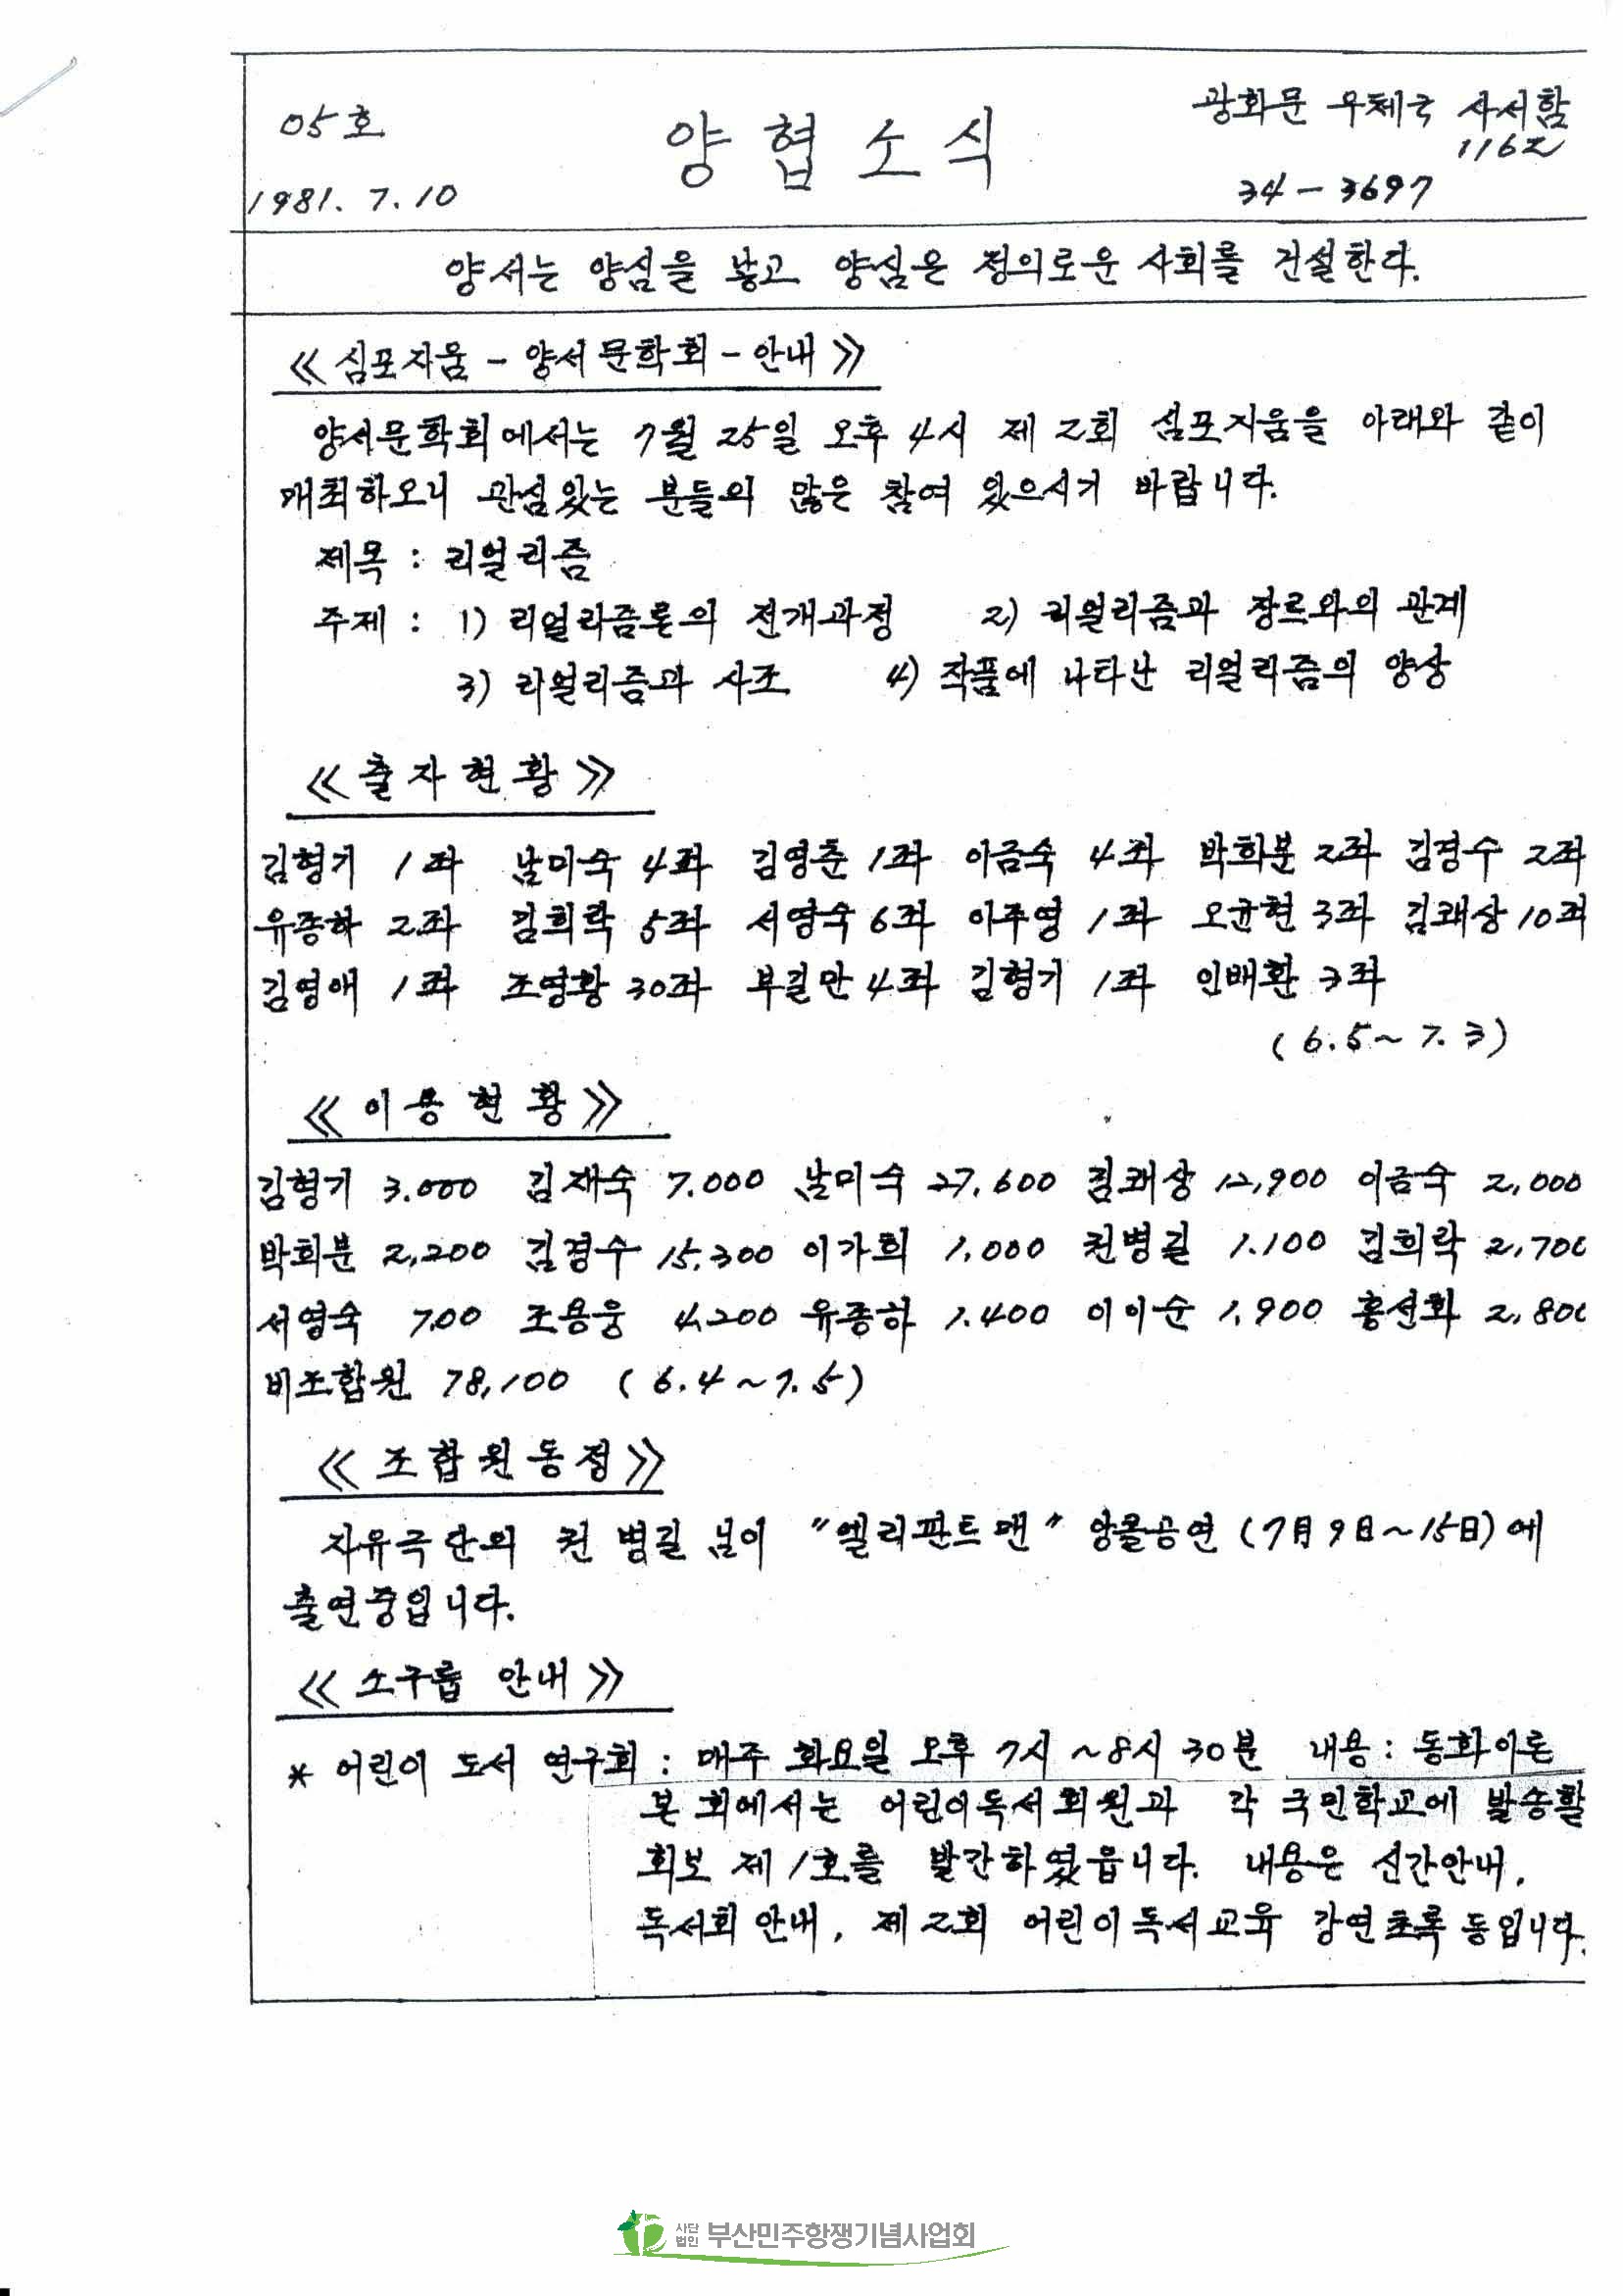 05호
양협소식
광화문 우체국 사서함
1162
1981. 7. 10
34-3697
양서는 양심을 낳고 양심은 정의로운 사회를 건설한다.
《심포지움 - 양서문학회 - 안내》
양서문학회에서는 7월 25일 오후 4시 제 2회 심포지움을 아래와 같이
개최하오니 관심있는 분들의 많은 참여 있으시기 바랍니다.
제목 : 리얼리즘
주제 : 1) 리얼리즘론의 전개과정 2) 리얼리즘과 장르와의 관계
3) 리얼리즘과 사조 4) 작품에 나타난 리얼리즘의 양상
《출자현황》
김형기 1좌 남미숙 4좌 김영춘 1좌 이금숙 4좌 박희분 2좌 김경수 2좌
유종하 2좌 김희락 5좌 서영숙 6좌 이주영 1좌 오균현 3좌 김쾌상 10좌
김영애 1좌 조영황 30좌 부길만 4좌 김형기 1좌 인배환 3좌
(6.5~7.3)
《이용현황》
김형기 3.000 김재숙 7.000 남미숙 27,600 김쾌상 12,900 이금숙 2,000
박희분 2,200 김경수 15,300 이가희 1,000 권병길 1.100 김희락 2,700
서영숙 700 조용웅 4,200 유종하 1.400 이이순 1,900 홍선화 2,800
비조합원 78,100 (6.4~7.5)
《조합원동정》
자유극단의 권병길 님이 "엘리판트맨" 앙콜공연(7月9日~15日)에
출연중입니다.
《소구룹 안내》
* 어린이 도서 연구회 : 매주 화요일 오후 7시~8시 30분 내용 : 동화이론
본 회에서는 어린이독서회원과 각 국민학교에 발송할
회보 제1호를 발간하였읍니다. 내용은 신간안내,
독서회 안내, 제2회 어린이독서교육 강연초록 등입니다.
사단법인 부산민주항쟁기념사업회